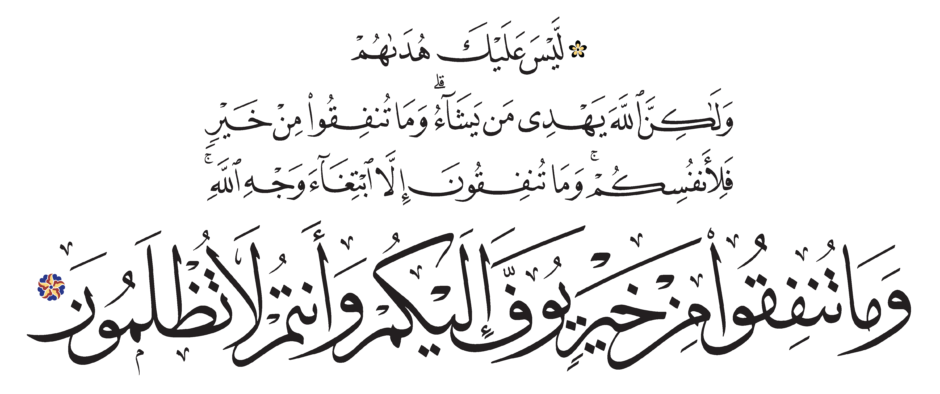 لَّيْسَ عَلَيْكَ هُدَىٰهُمْ
وَلَٰكِنَّ ٱللَّهَ يَهْدِى مَن يَشَآءُ ۗ وَمَا تُنفِقُوا۟ مِنْ خَيْرٍ
فَلِأَنفُسِكُمْ ۚ وَمَا تُنفِقُونَ إِلَّا ٱبْتِغَآءَ وَجْهِ ٱللَّهِ ۚ
وَمَا تُنفِقُوا۟ مِنْ خَيْرٍ يُوَفَّ إِلَيْكُمْ وَأَنتُمْ لَا تُظْلَمُونَ